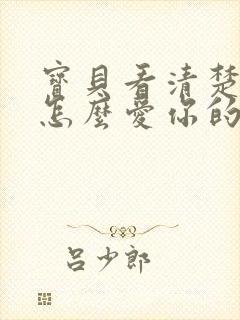 寶貝看清楚
怎麼愛你的
呂少郎